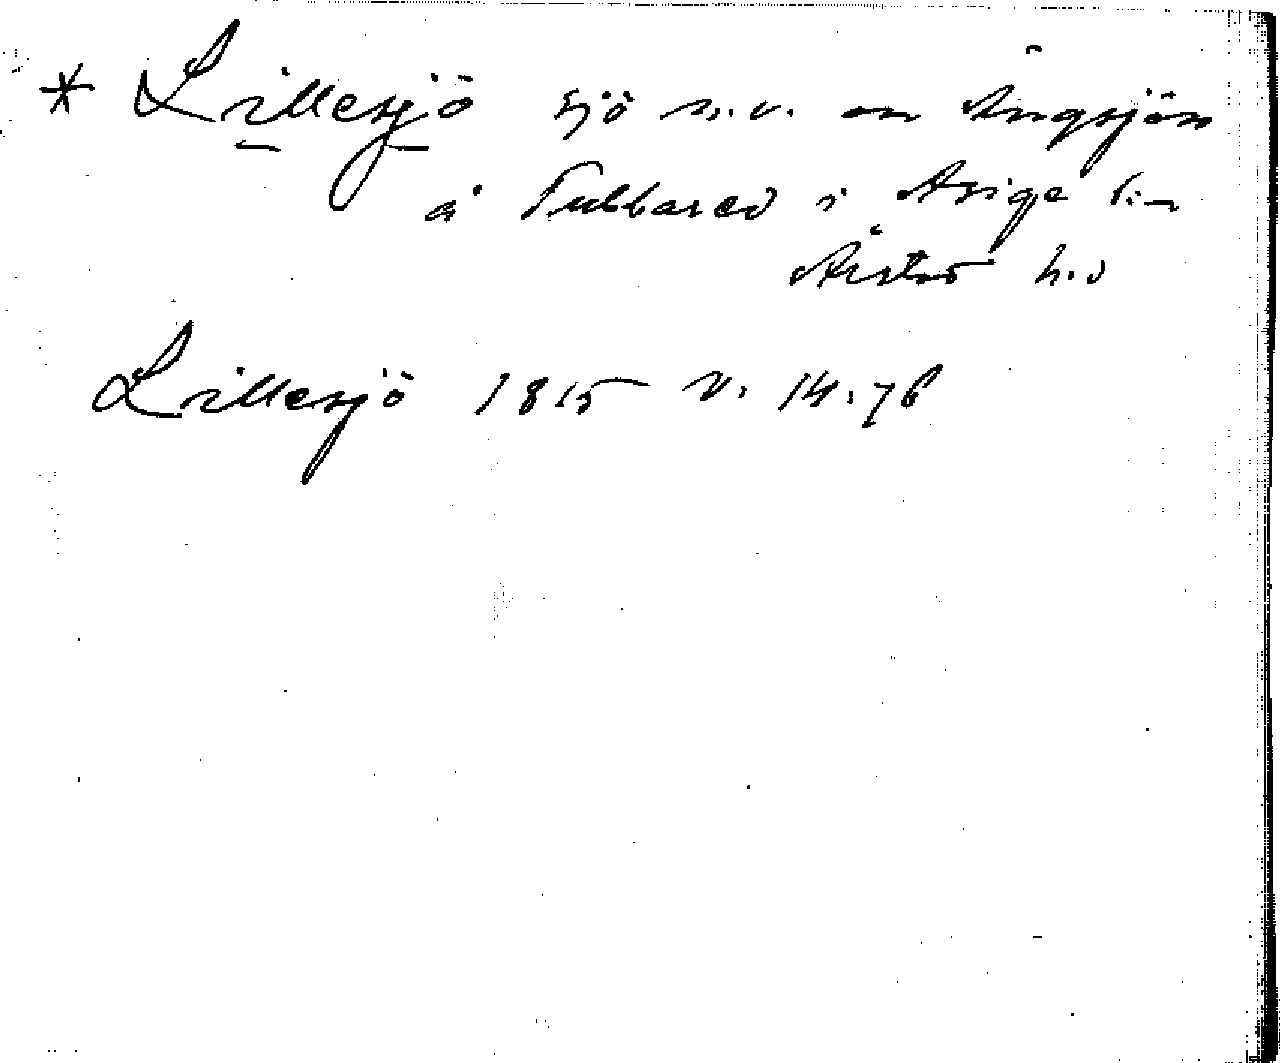 * Lillesjö sjö n.v. om Ängsjön
å Tubbared i Asige s:n
Årstad h.d
Lillesjö 1815 V. 14.76